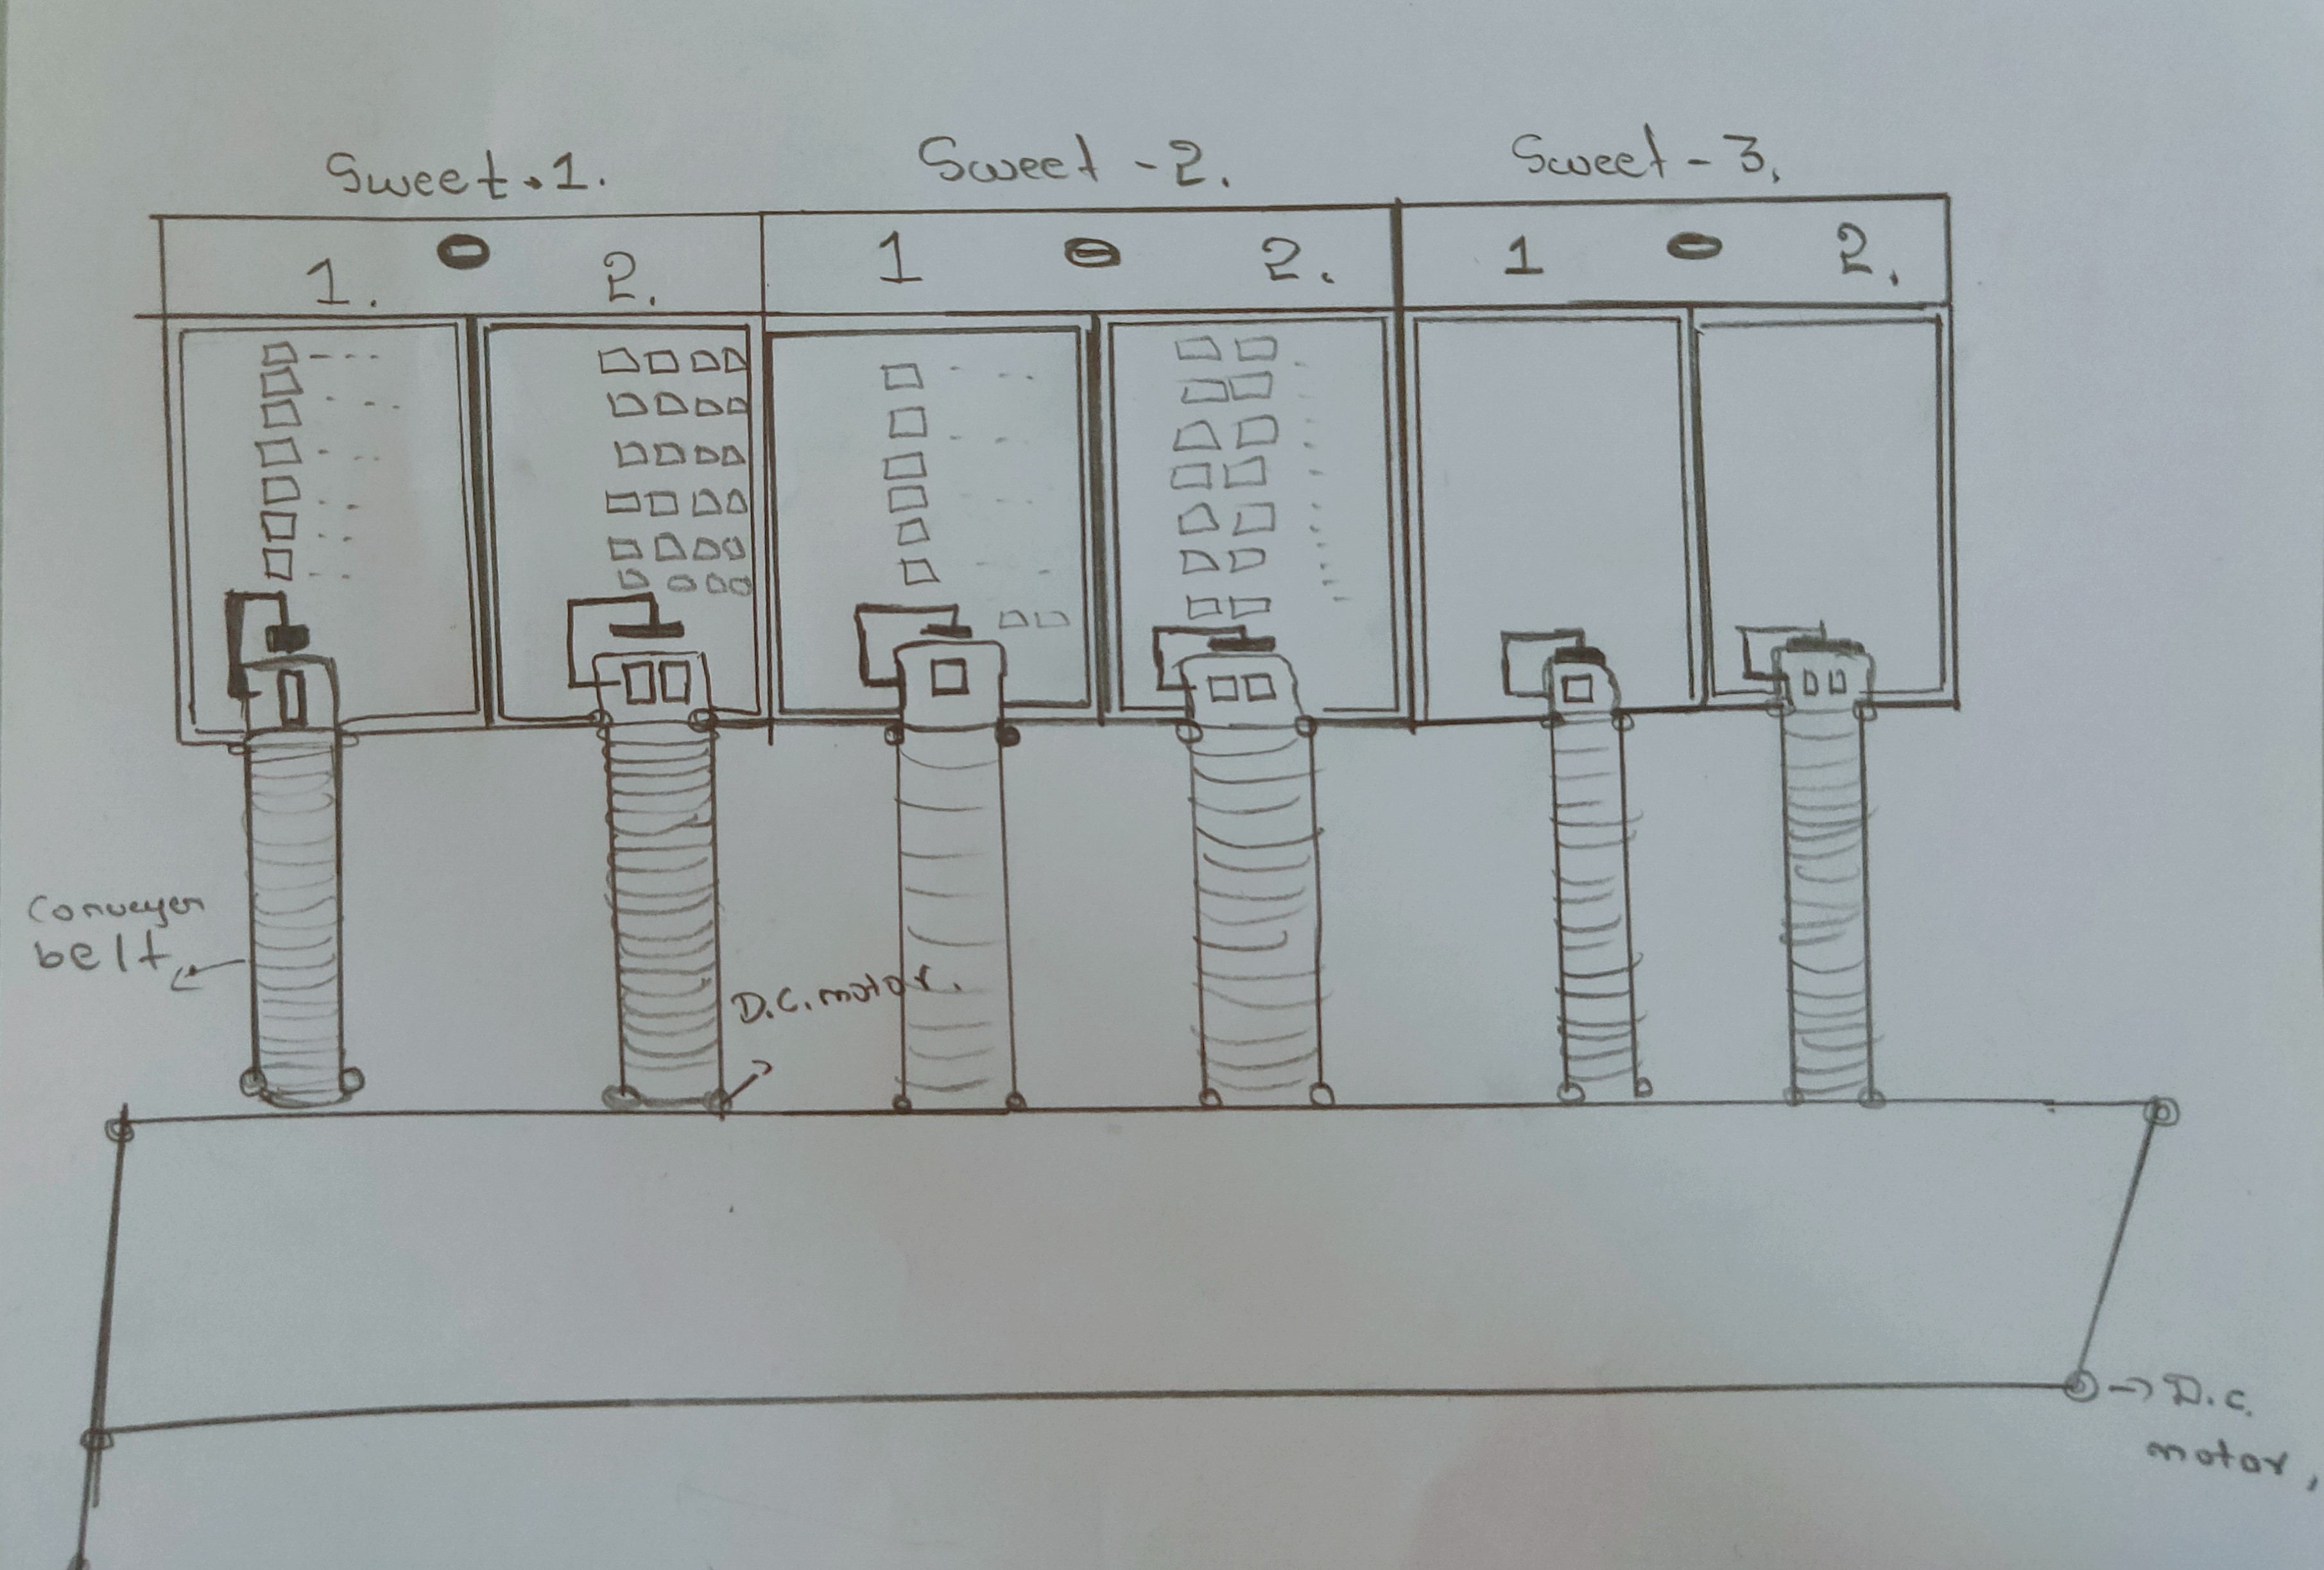 Sweet.1.
Sweet-2.
Sweet-3.
1.
2.
1
2.
1
2.
Conveyer
belt
D.C. motor.
D.c.
motor,